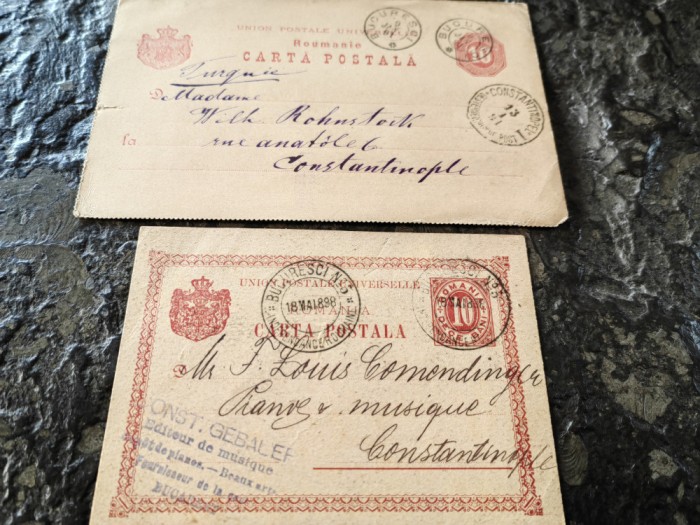 UNION POSTALE UNIV
Roumanie
CARTA POSTALĂ
BUCURESCI
BUCURE
Turquie
D Madame
Wilh. Rohnstock
la rue anatole 6
Constantinople
CONSTANTINOPEL
13
1
POST
UNION POSTALE UNIVERSELLE
ROMANIA
CARTA POSTALA
BUCURESCI No. 5
18 MAI 898
ROMANIA
10
BANI
D Mr J. Louis Comendinger
Pianos & musique
Constantinople
ONST. GEBAUER
Editeur de musique
de pianos. — Beaux arts
Fournisseur de la